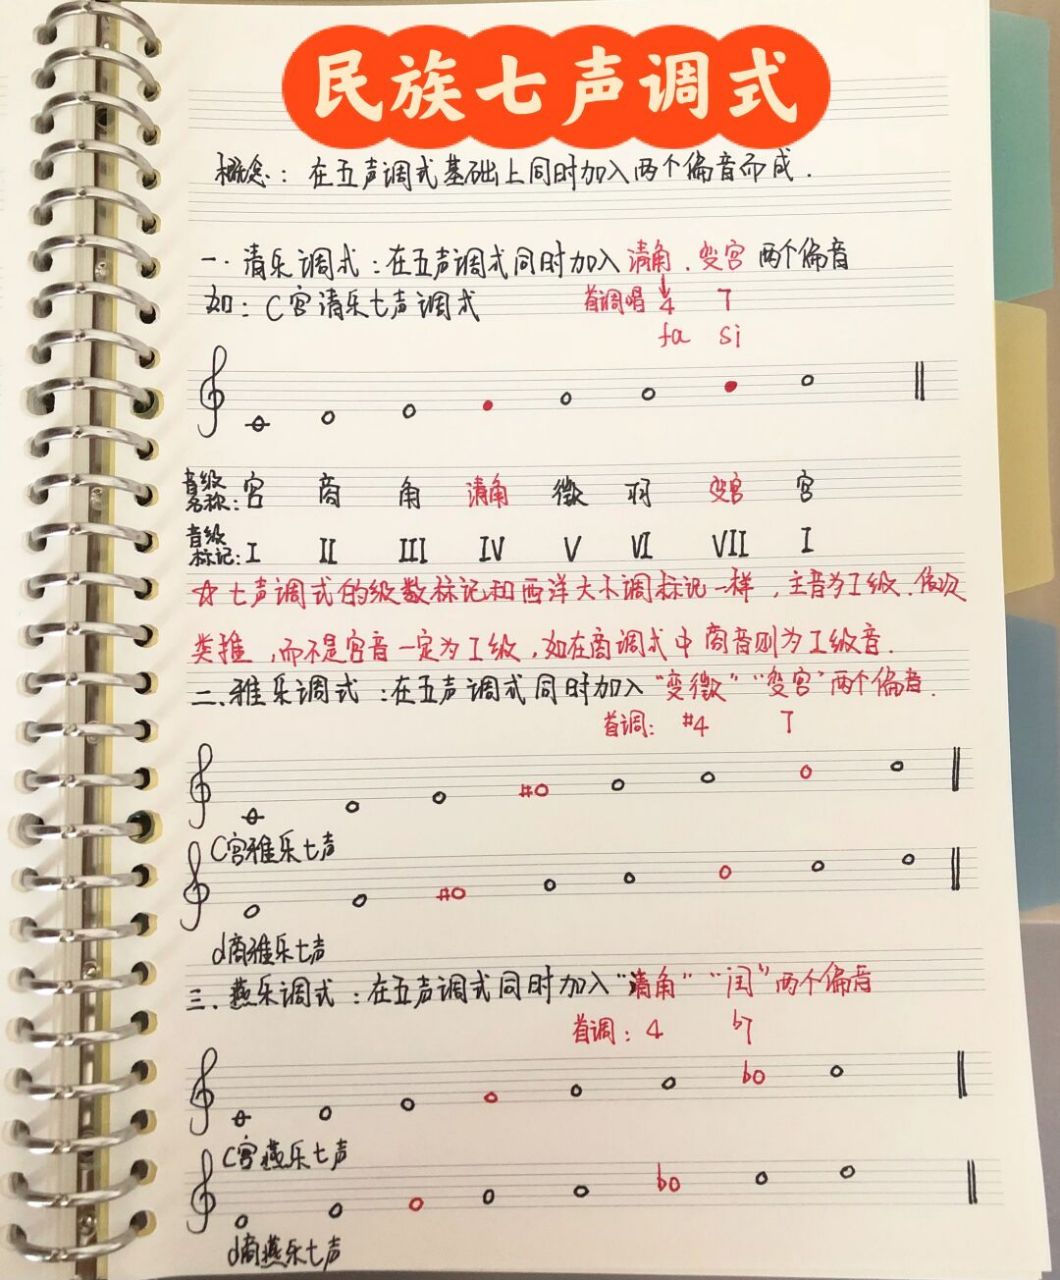 民族七声调式
概念：在五声调式基础上同时加入两个偏音而成.
一.清乐调式：在五声调式同时加入清角、变宫两个偏音
如：C宫清乐七声调式 首调唱 4 7
fa si
音级名称：宫 商 角 清角 徵 羽 变宫 宫
音级标记：I II III IV V VI VII I
☆七声调式的级数标记和西洋大小调标记一样，主音为I级.依次
类推，而不是宫音一定为I级，如在商调式中商音则为I级音.
二.雅乐调式：在五声调式同时加入“变徵”“变宫”两个偏音.
首调：#4 7
C宫雅乐七声
d商雅乐七声
三.燕乐调式：在五声调式同时加入“清角”“闰”两个偏音
首调：4 b7
C宫燕乐七声
d商燕乐七声